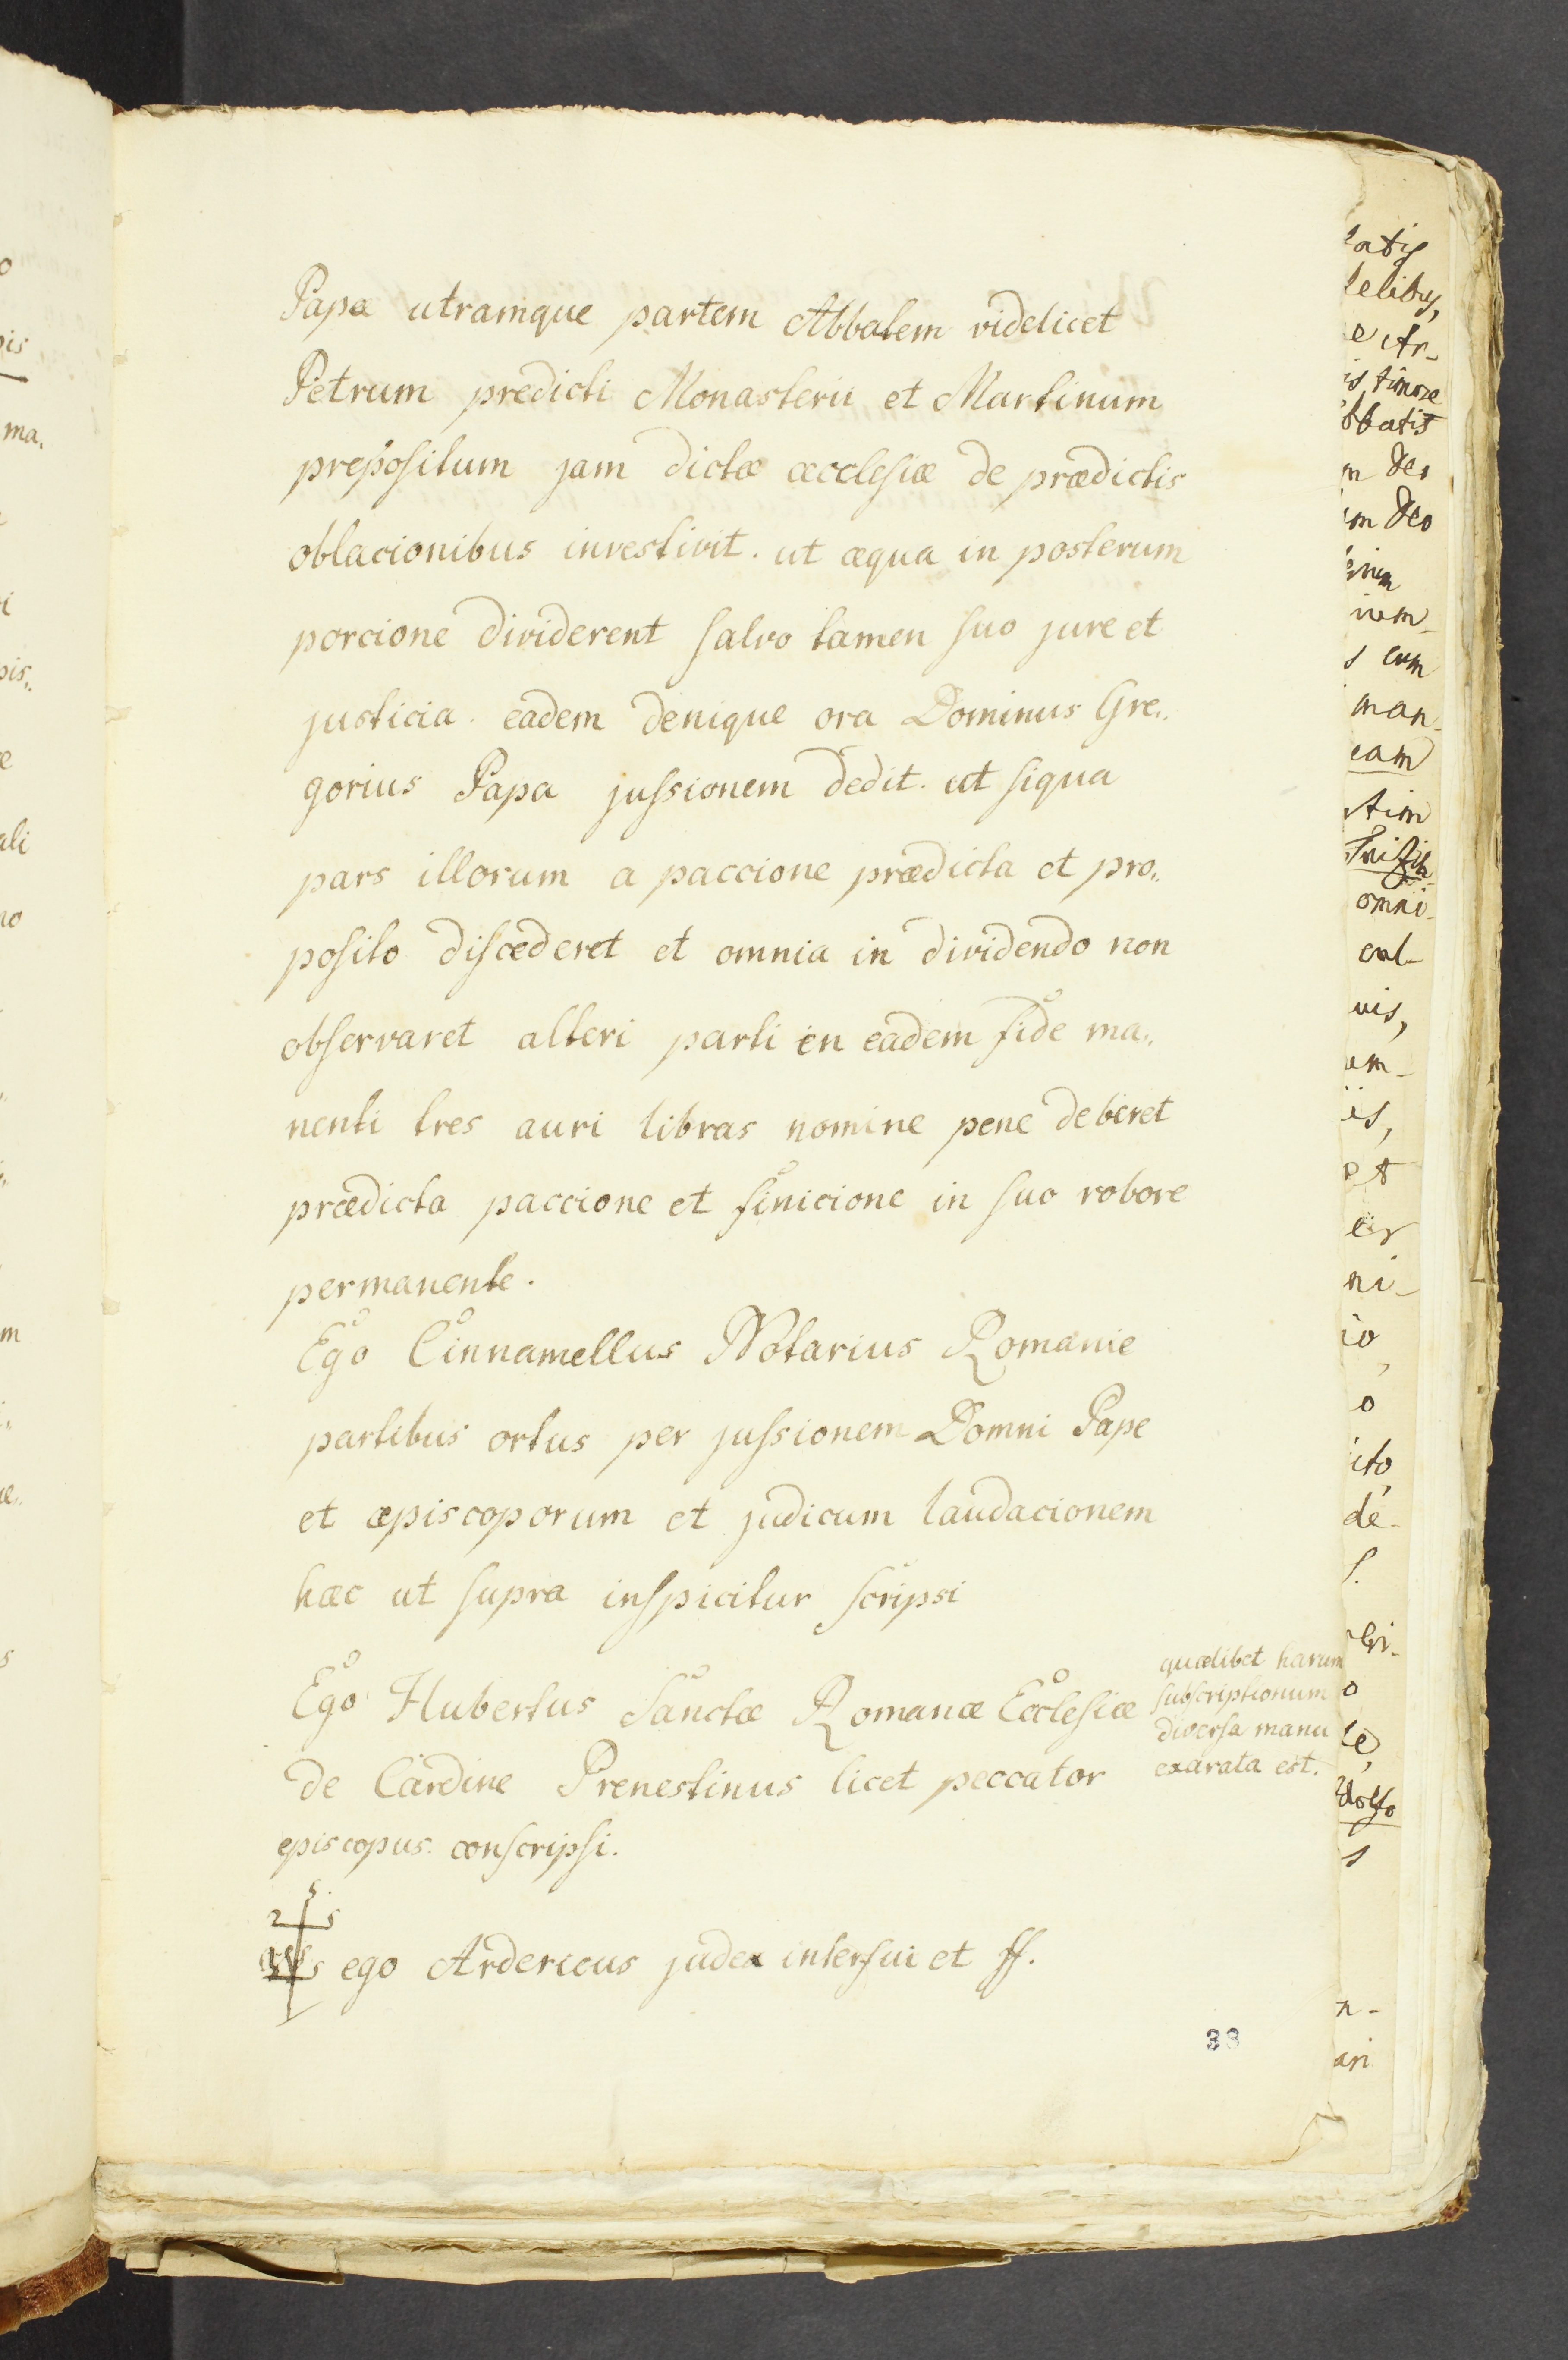 Papa utramque partem Abbatem videlicet
Petrum predicti Monasterii et Martinum
prepositum jam dictæ æcclesiæ de prædictis
oblacionibus investivit. ut æqua in posterum
porcione dividerent salvo tamen suo jure et
justicia. eadem denique ora Dominus Gre„
gorius Papa jussionem dedit. ut siqua
pars illorum a paccione prædicta et pro„
posito discæderet et omnia in dividendo non
observaret alteri parti in eadem fide ma„
nenti tres auri libras nomine pene deberet
prædicta paccione et finicione in suo robore
permanente.
Ego Cinnamellus Notarius Romanie
partibus ortus per jussionem Domni Pape
et æpiscoporum et judicum laudacionem
hæc ut supra inspicitur scripsi
Ego Hubertus Sanctæ Romanæ Ecclesiæ
de Cardine Prenestinus licet peccator
episcopus conscripsi.
quælibet harum
subscriptionum
diversa manu
exarata est.
ego Ardericus judex interfui et ff.
38